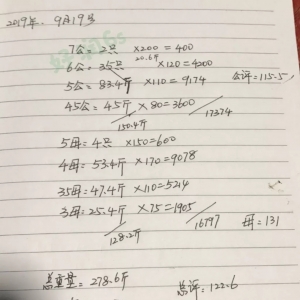 2019年. 9月19号
7公=2只 ×200=400
20.6斤
6公=35只 ×120=4200
5公=83.4斤 ×110=9174 公评=115.5
45公=45斤 ×80=3600
150.4斤 17374
5母=4只 ×150=600
4母=53.4斤 ×170=9078
35母=47.4斤 ×110=5214
3母=25.4斤 ×75=1905
128.2斤 16797 母=131
总重量=278.6斤 总评=122.6